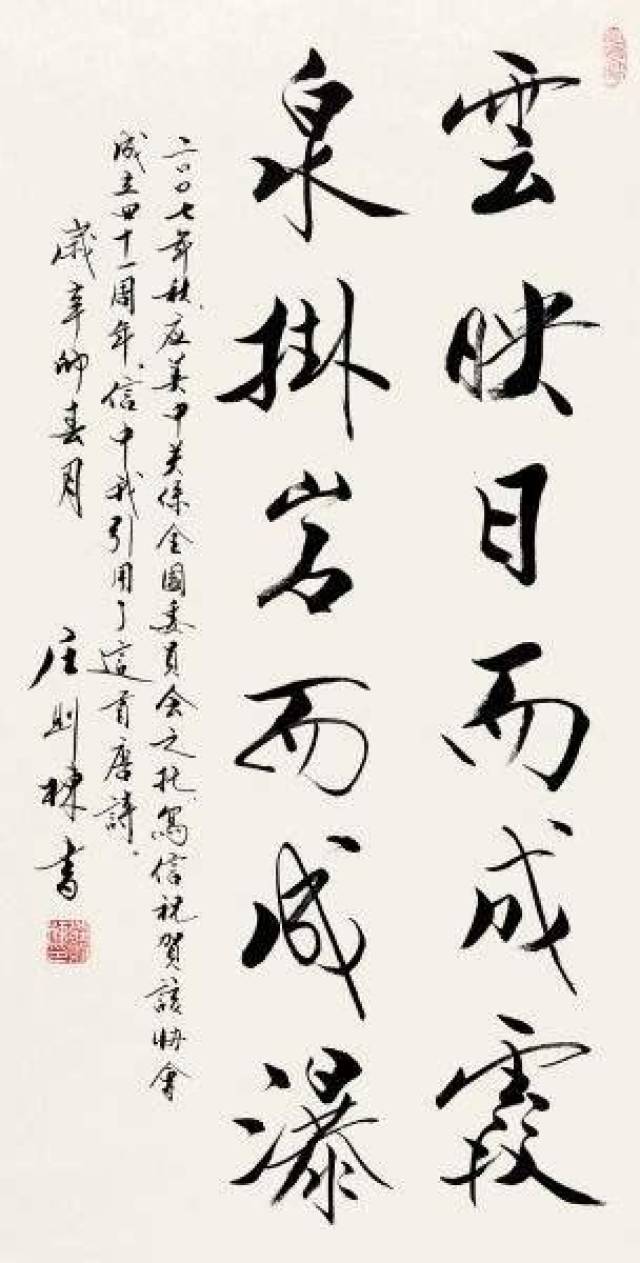 雲映日而成霞
泉掛岩而成瀑
二〇〇七年秋,应美中关係全國委員会之托,寫信祝賀該協會
成立四十一周年,信中我引用了這首唐詩.
歲辛卯春月
庄則棟書